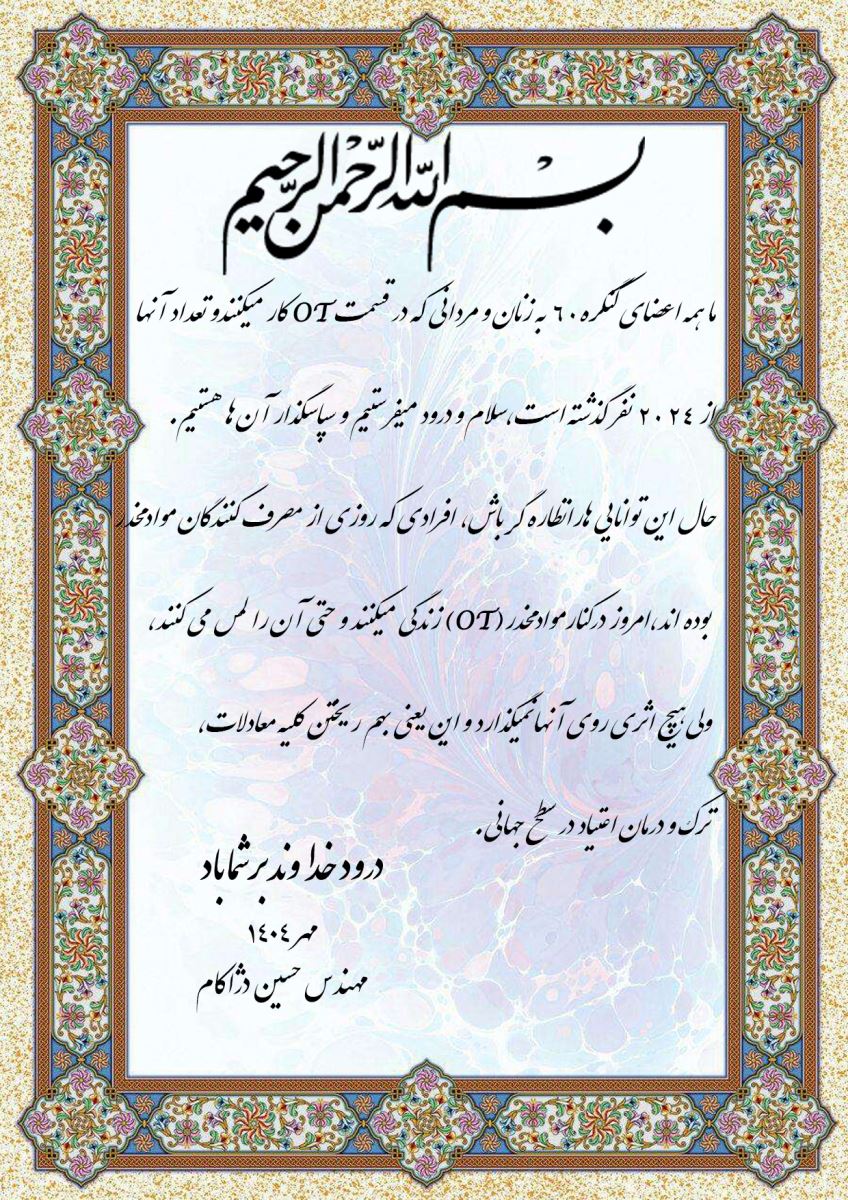 بسم الله الرحمن الرحیم
ما همه اعضای کنگره ۶۰ به زنان و مردانی که در قسمت OT کار میکنند و تعداد آنها
از ۲۰۲۴ نفر گذشته است، سلام و درود میفرستیم و سپاسگذار آن ها هستیم.
حال این توانایی هارانظاره گر باش، افرادی که روزی از مصرف کنندگان موادمخدر
بوده اند، امروز درکنار موادمخدر (OT) زندگی میکنند و حتی آن را لمس می کنند،
ولی هیچ اثری روی آنها نمیگذارد و این یعنی بهم ریختن کلیه معادلات،
ترک و درمان اعتیاد در سطح جهانی.
درود خداوند بر شما باد
مهر ۱۴۰۴
مهندس حسین دژاکام